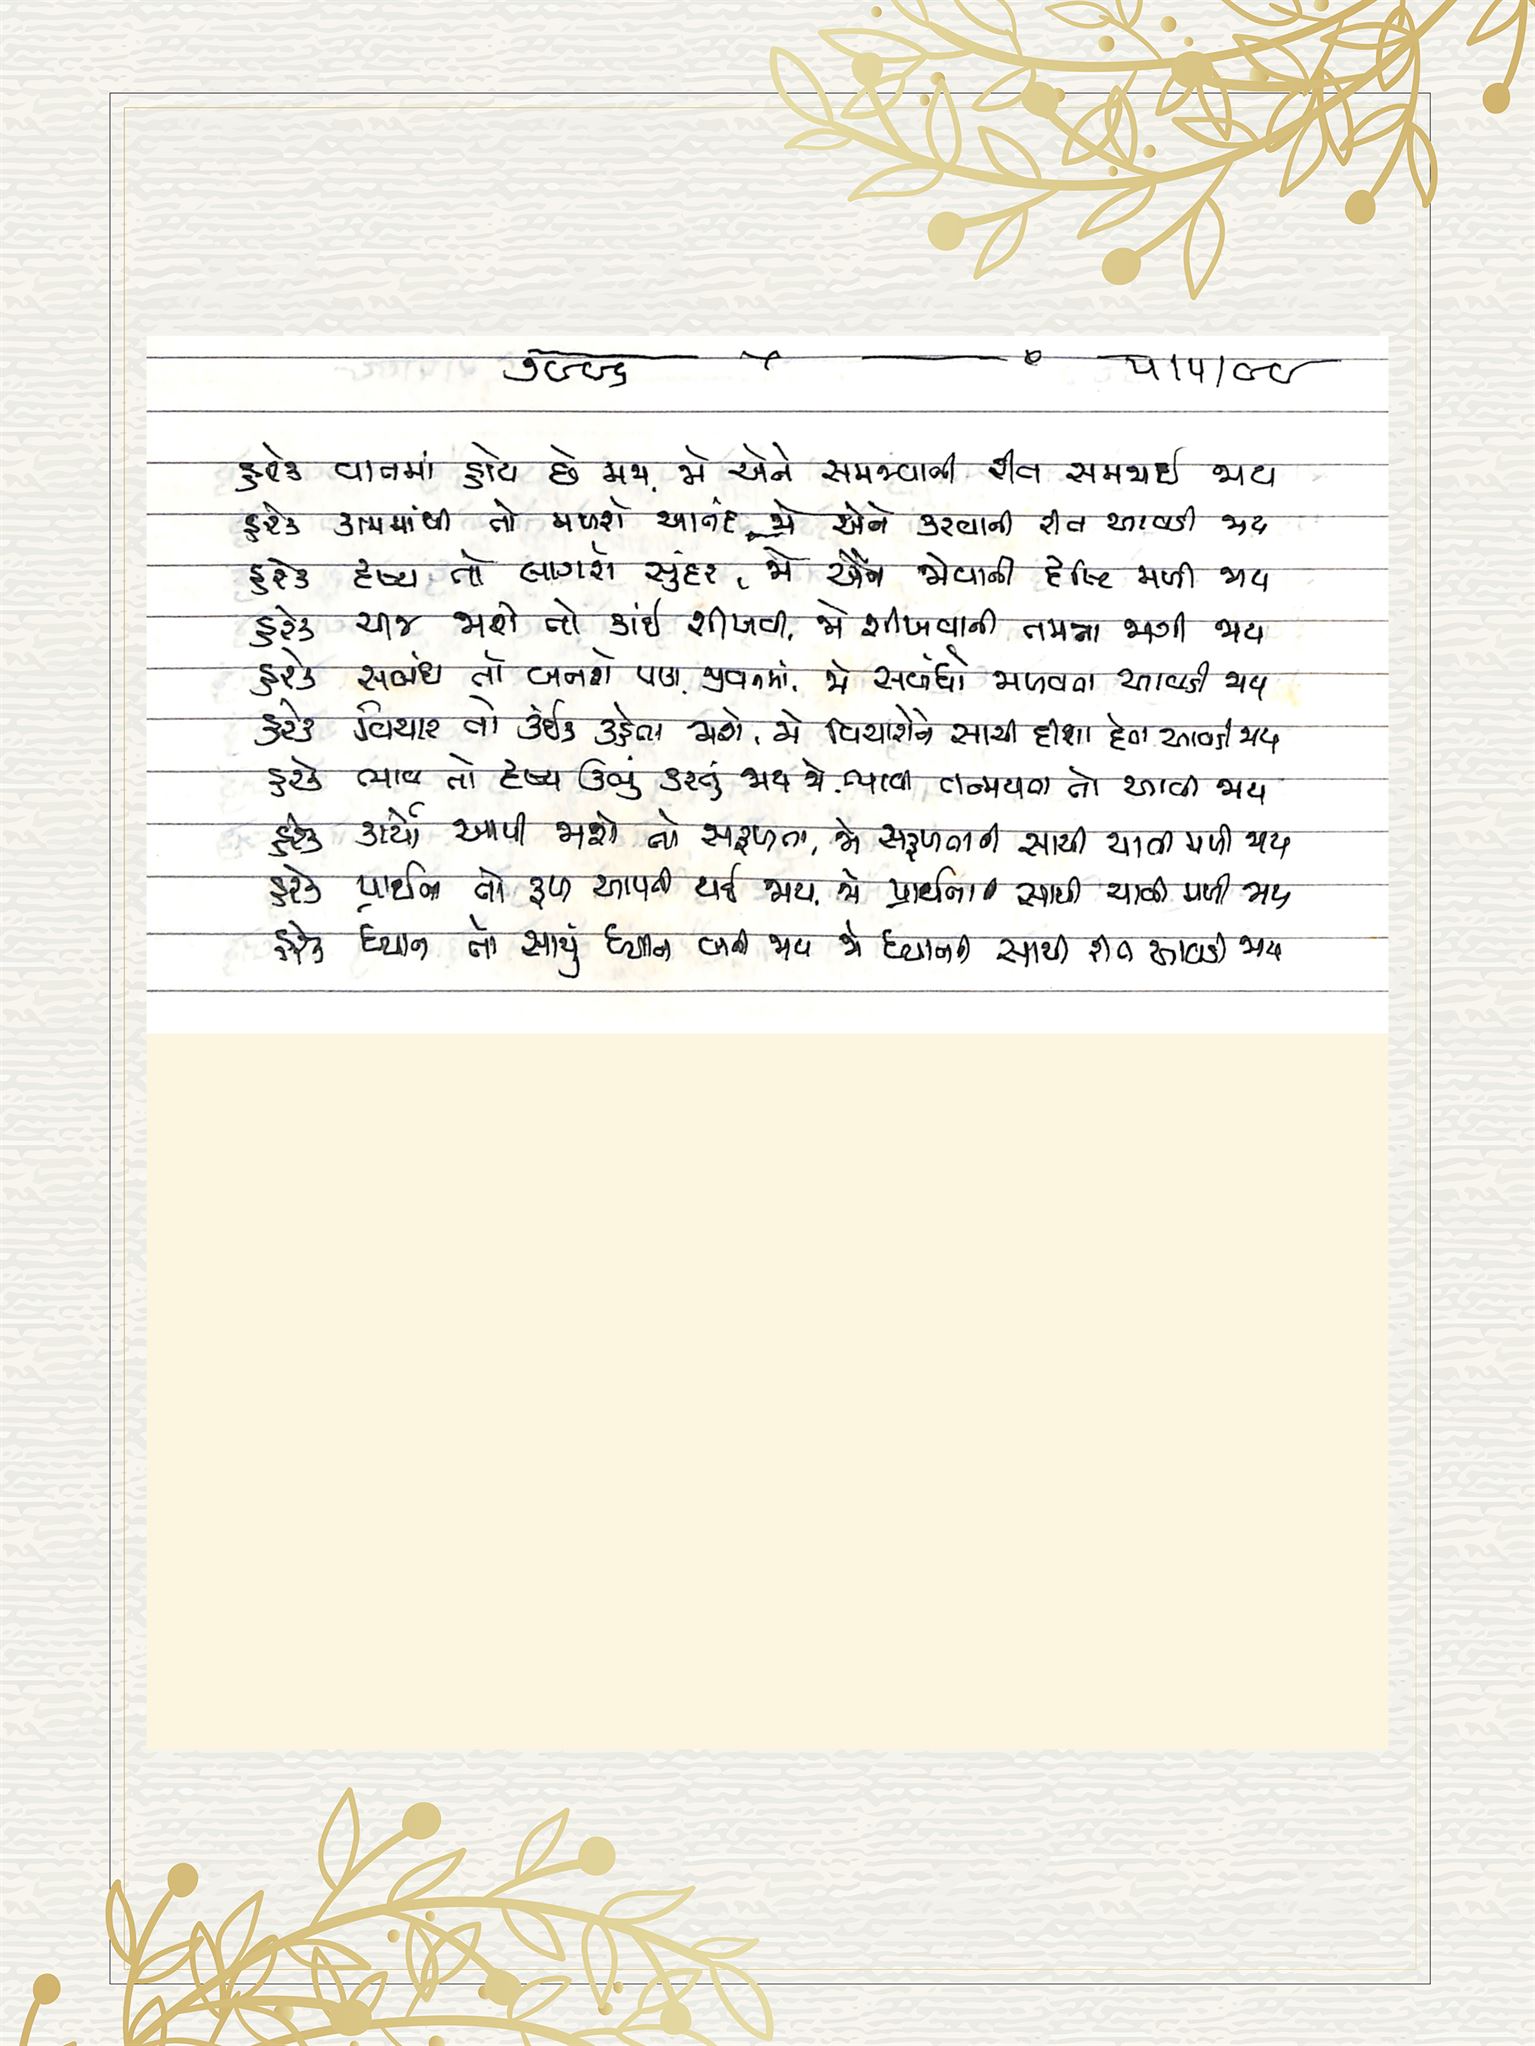 ૭૯૯૬ ૫/૫/૯૯
હરેક વાતમાં હોય છે મર્મ, જો એને સમજવાની રીત સમજાઈ જાય
હરેક કામમાંથી તો મળશે આનંદ, જો એને કરવાની રીત આવડી જાય
હરેક દૃશ્ય તો લાગશે સુંદર, જો એને જોવાની દૃષ્ટિ મળી જાય
હરેક ચીજ જાશે તો કાંઈ શીખવી, જો શીખવાની તમન્ના જાગી જાય
હરેક સબંધ તો બનશે પણ જીવનમાં, જો સબંધો જાળવતા આવડી જાય
હરેક વિચાર તો કંઈક કહેતા જાશે, જો વિચારોને સાચી દીશા દેતા આવડી જાય
હરેક ભાવ તો દૃશ્ય ઊભું કરતું જાય જો ભાવની તન્મયતા તો આવી જાય
હરેક કાર્યો આપી જાશે તો સફળતા, જો સફળતાની સાચી ચાવી મળી જાય
હરેક પ્રાર્થના તો ફળ આપતી થઈ જાય, જો પ્રાર્થનાની સાચી ચાવી મળી જાય
હરેક ધ્યાન તો સાચું ધ્યાન બની જાય જો ધ્યાનની સાચી રીત આવડી જાય